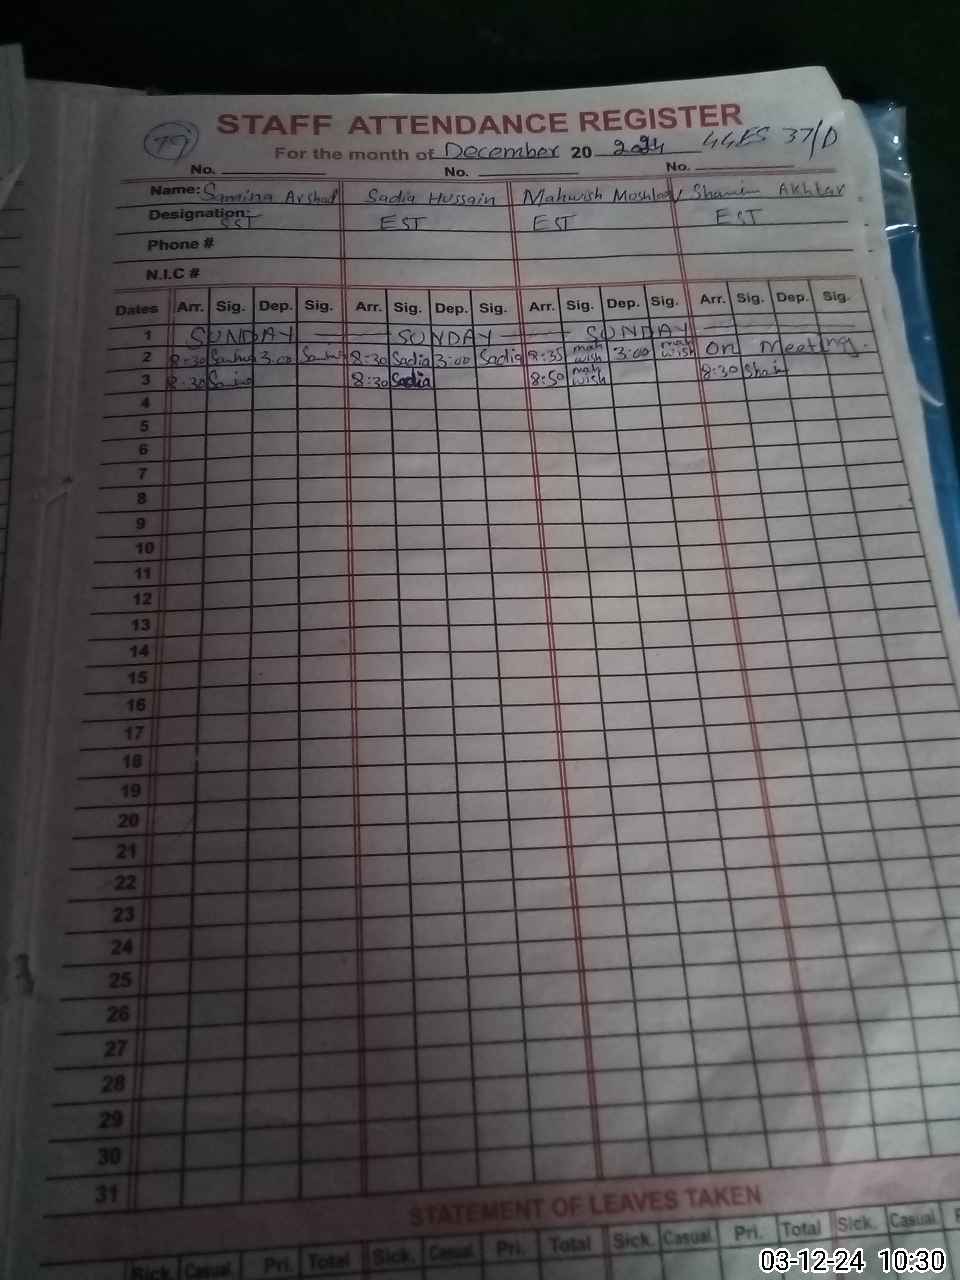 STAFF ATTENDANCE REGISTER
79
For the month of December 20 2024
No. No. No.
Name: Samina Arshad Sadia Hussain Mahwish Mushtaq Shamim Akhtar
Designation: SST EST EST EST
Phone #
N.I.C #
Dates Arr. Sig. Dep. Sig. Arr. Sig. Dep. Sig. Arr. Sig. Dep. Sig. Arr. Sig. Dep. Sig.
1 SUNDAY SUNDAY SUNDAY
2 8:30 3:00 8:30 Sadia 3:00 Sadia 8:35 mah wish 3:00 mah wish On Meeting.
3 8:30 8:30 Sadia 8:50 mah wish 8:30
4
5
6
7
8
9
10
11
12
13
14
15
16
17
18
19
20
21
22
23
24
25
26
27
28
29
30
31
STATEMENT OF LEAVES TAKEN
Sick. Casual Pri. Total Sick. Casual Pri. Total Sick. Casual Pri. Total Sick. Casual
03-12-24 10:30